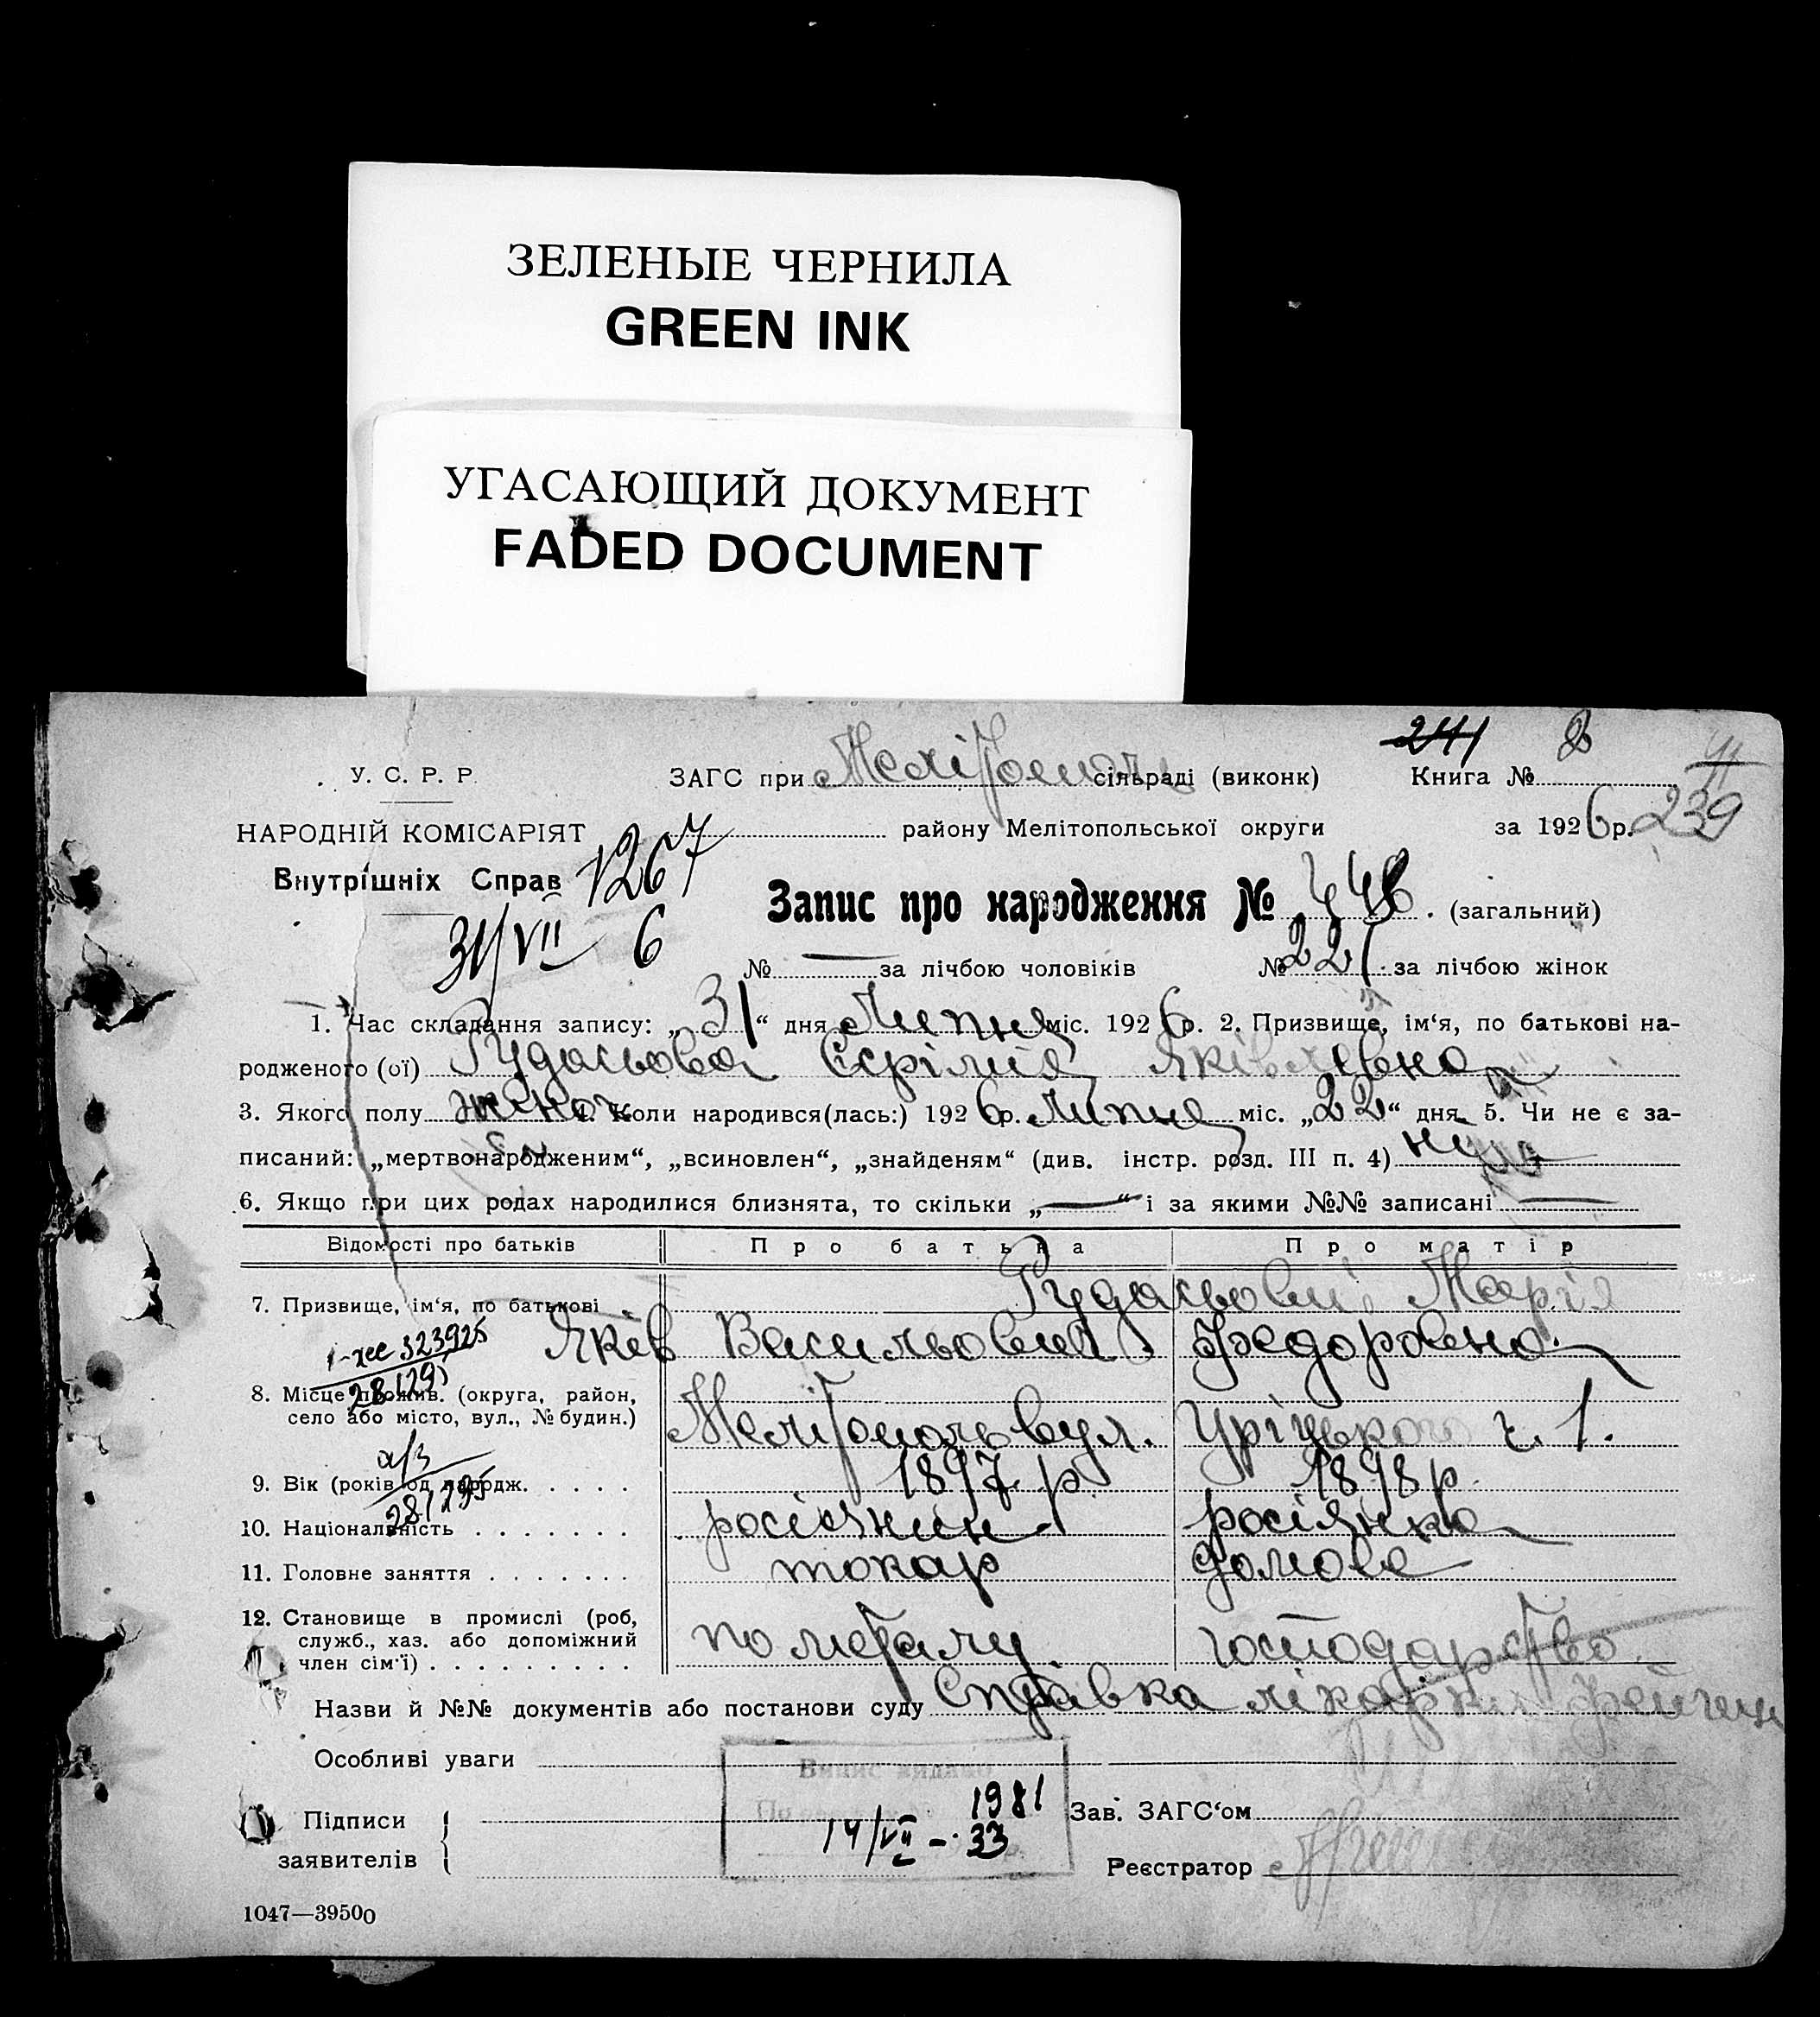 ЗЕЛЕНЫЕ ЧЕРНИЛА
GREEN INK
УГАСАЮЩИЙ ДОКУМЕНТ
FADED DOCUMENT
241 2
У. С. Р. Р. ЗАГС при сільраді (виконк) Книга №
239
НАРОДНІЙ КОМІСАРІЯТ району Мелітопольської округи за 1926 р.
Внутрішніх Справ 1267
Запис про народження № 448. (загальний)
31/VII 6
№ — за лічбою чоловіків № 221. за лічбою жінок
1. Час складання запису: „31“ дня Липня міс. 1926 р. 2. Призвище, ім‘я, по батькові на-
родженого (ої) Яківлевна
3. Якого полу жіноч. 4. Коли народився(лась:) 1926 р. Липня міс. „22“ дня. 5. Чи не є за-
писаний: „мертвонародженим“, „всиновлен“, „знайденям“ (див. інстр. розд. III п. 4) ні
6. Якщо при цих родах народилися близнята, то скільки „—“ і за якими №№ записані —
Відомості про батьків Про батька Про матір
7. Призвище, ім‘я, по батькові Марія
Яків Васильович Федоровна
323925
8. Місце прожив. (округа, район,
село або місто, вул., № будин.) Мелітополь вул. Уріцького ч. 1.
9. Вік (років од народж. . . . . 1897 р. 1898 р.
10. Національність . . . . . . . росіянин росіянка
11. Головне заняття . . . . . . . токар домове
12. Становище в промислі (роб,
служб., хаз. або допоміжний
член сім‘ї) . . . . . . . . . по металу господарство
Назви й №№ документів або постанови суду Справка лікарки
Особливі уваги
Випис видано
1981
14/VII – 33
Підписи
заявителів
Зав. ЗАГС‘ом
Реєстратор
1047—39500